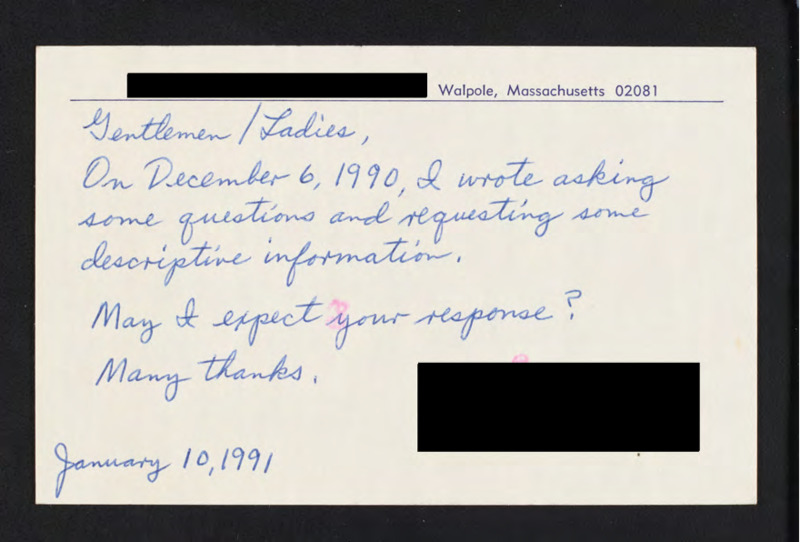 Walpole, Massachusetts 02081
Gentlemen / Ladies,
On December 6, 1990, I wrote asking
some questions and requesting some
descriptive information.
May I expect your response?
Many thanks.
January 10, 1991